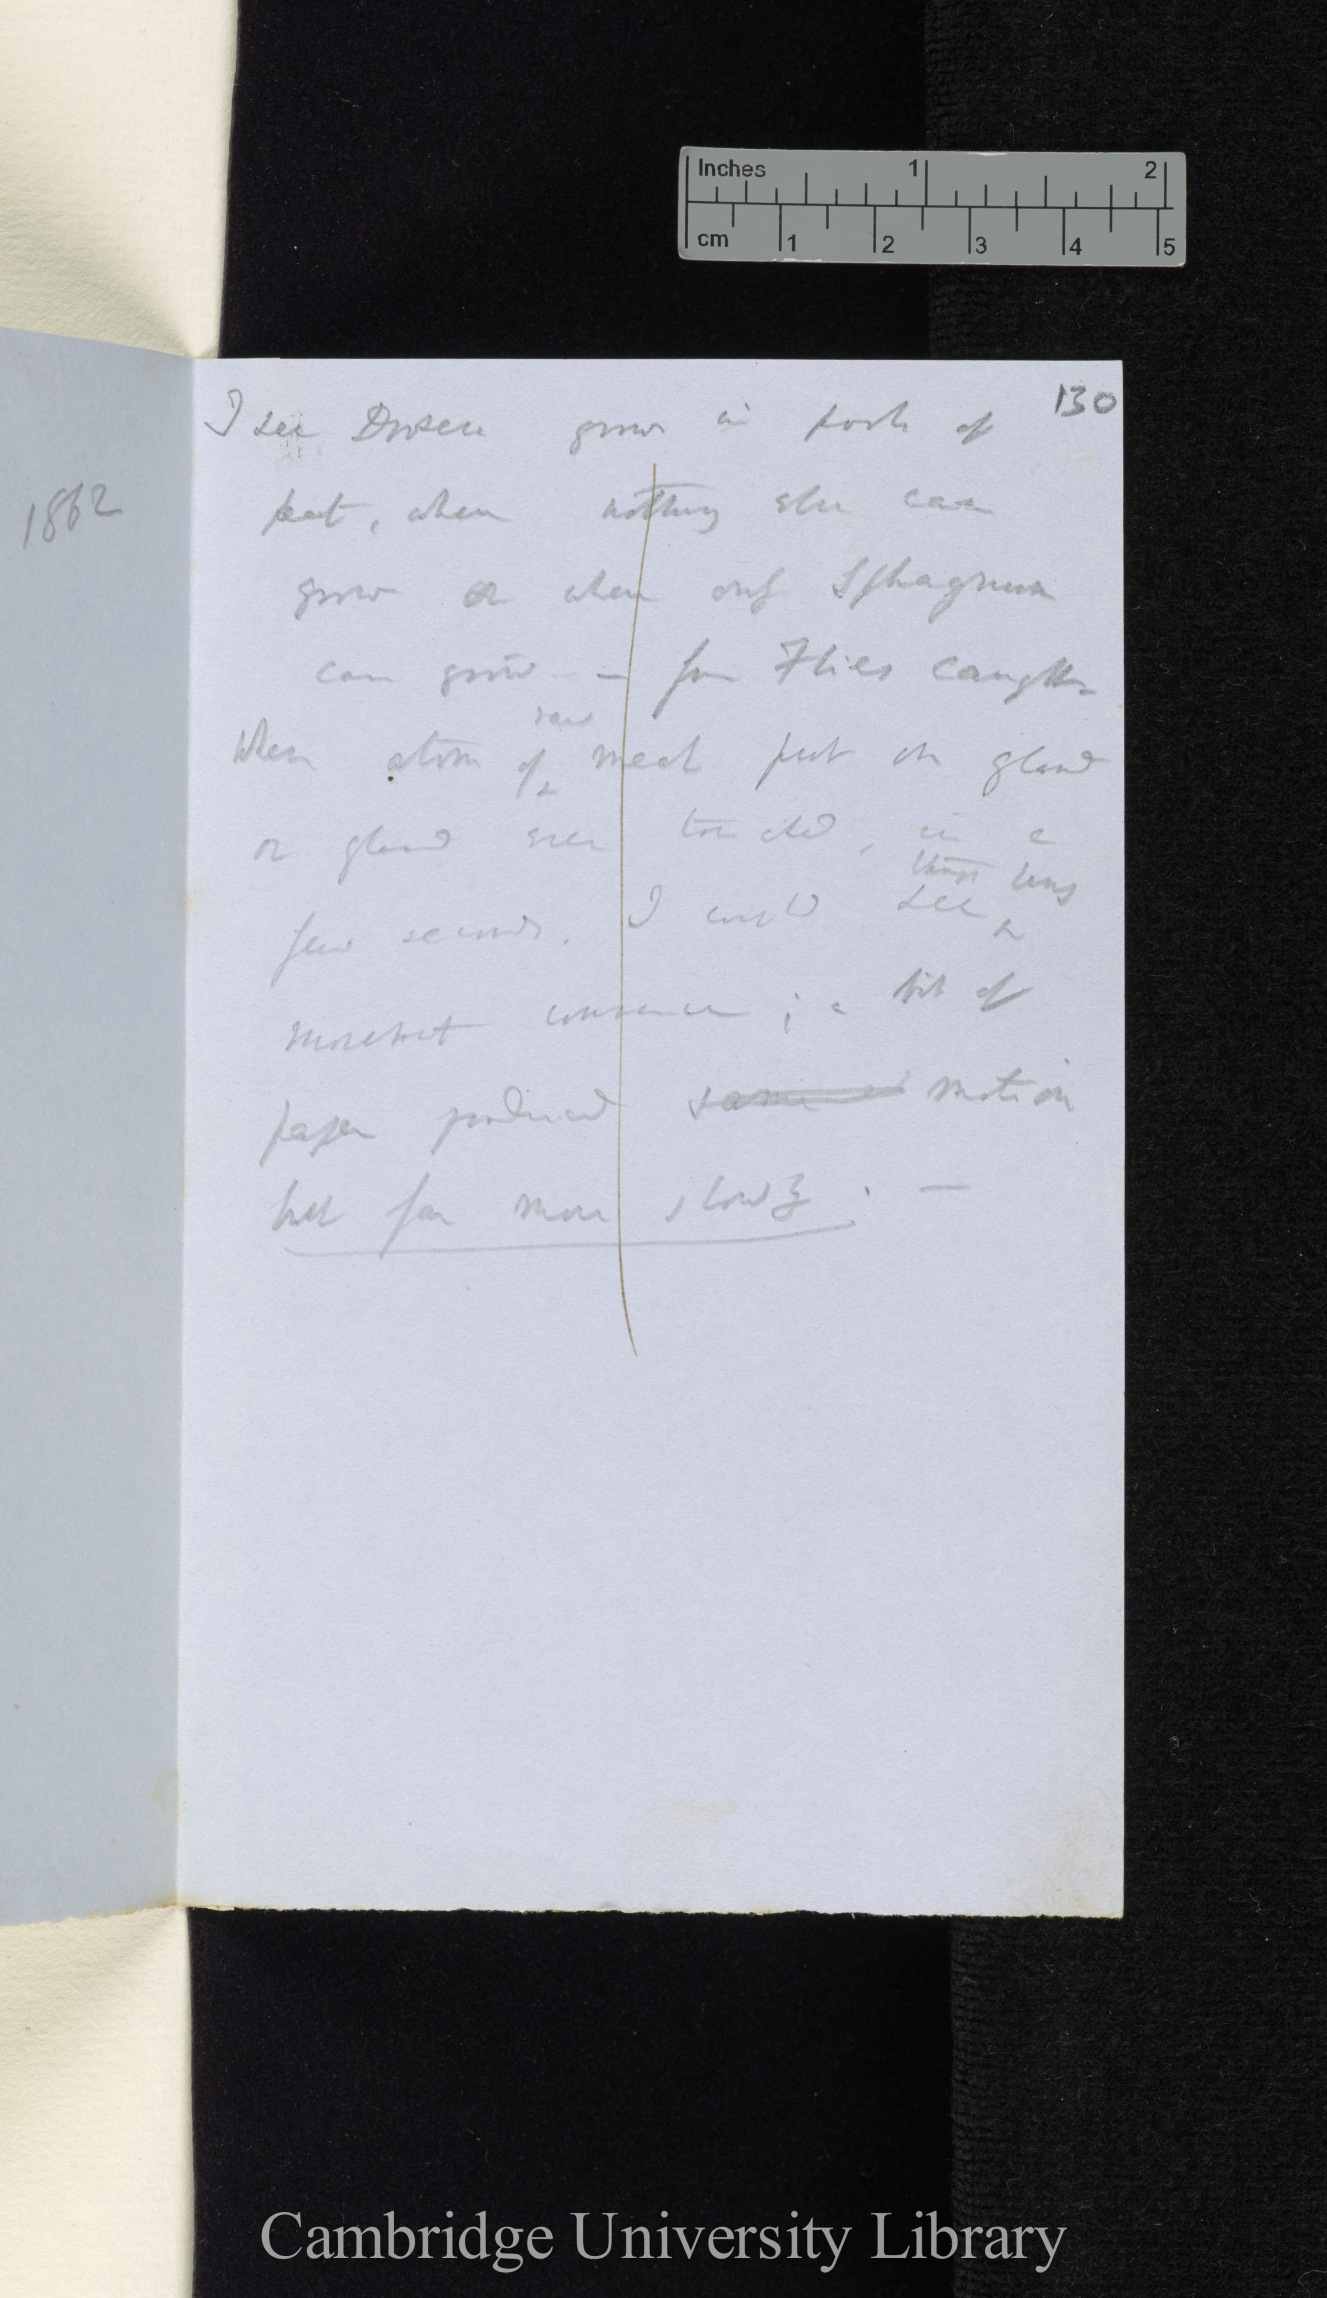 Inches 1 2
cm 1 2 3 4 5
130
1862
I see Drosera grows in pools of
peat, where nothing else can
grow or where only Sphagnum
can grow — few Flies caught
When atom of raw meat put on gland
or gland even touched, in a
few seconds. I could see through lens
movement commence; a bit of
paper produced same motion
but far more slowly. —
Cambridge University Library